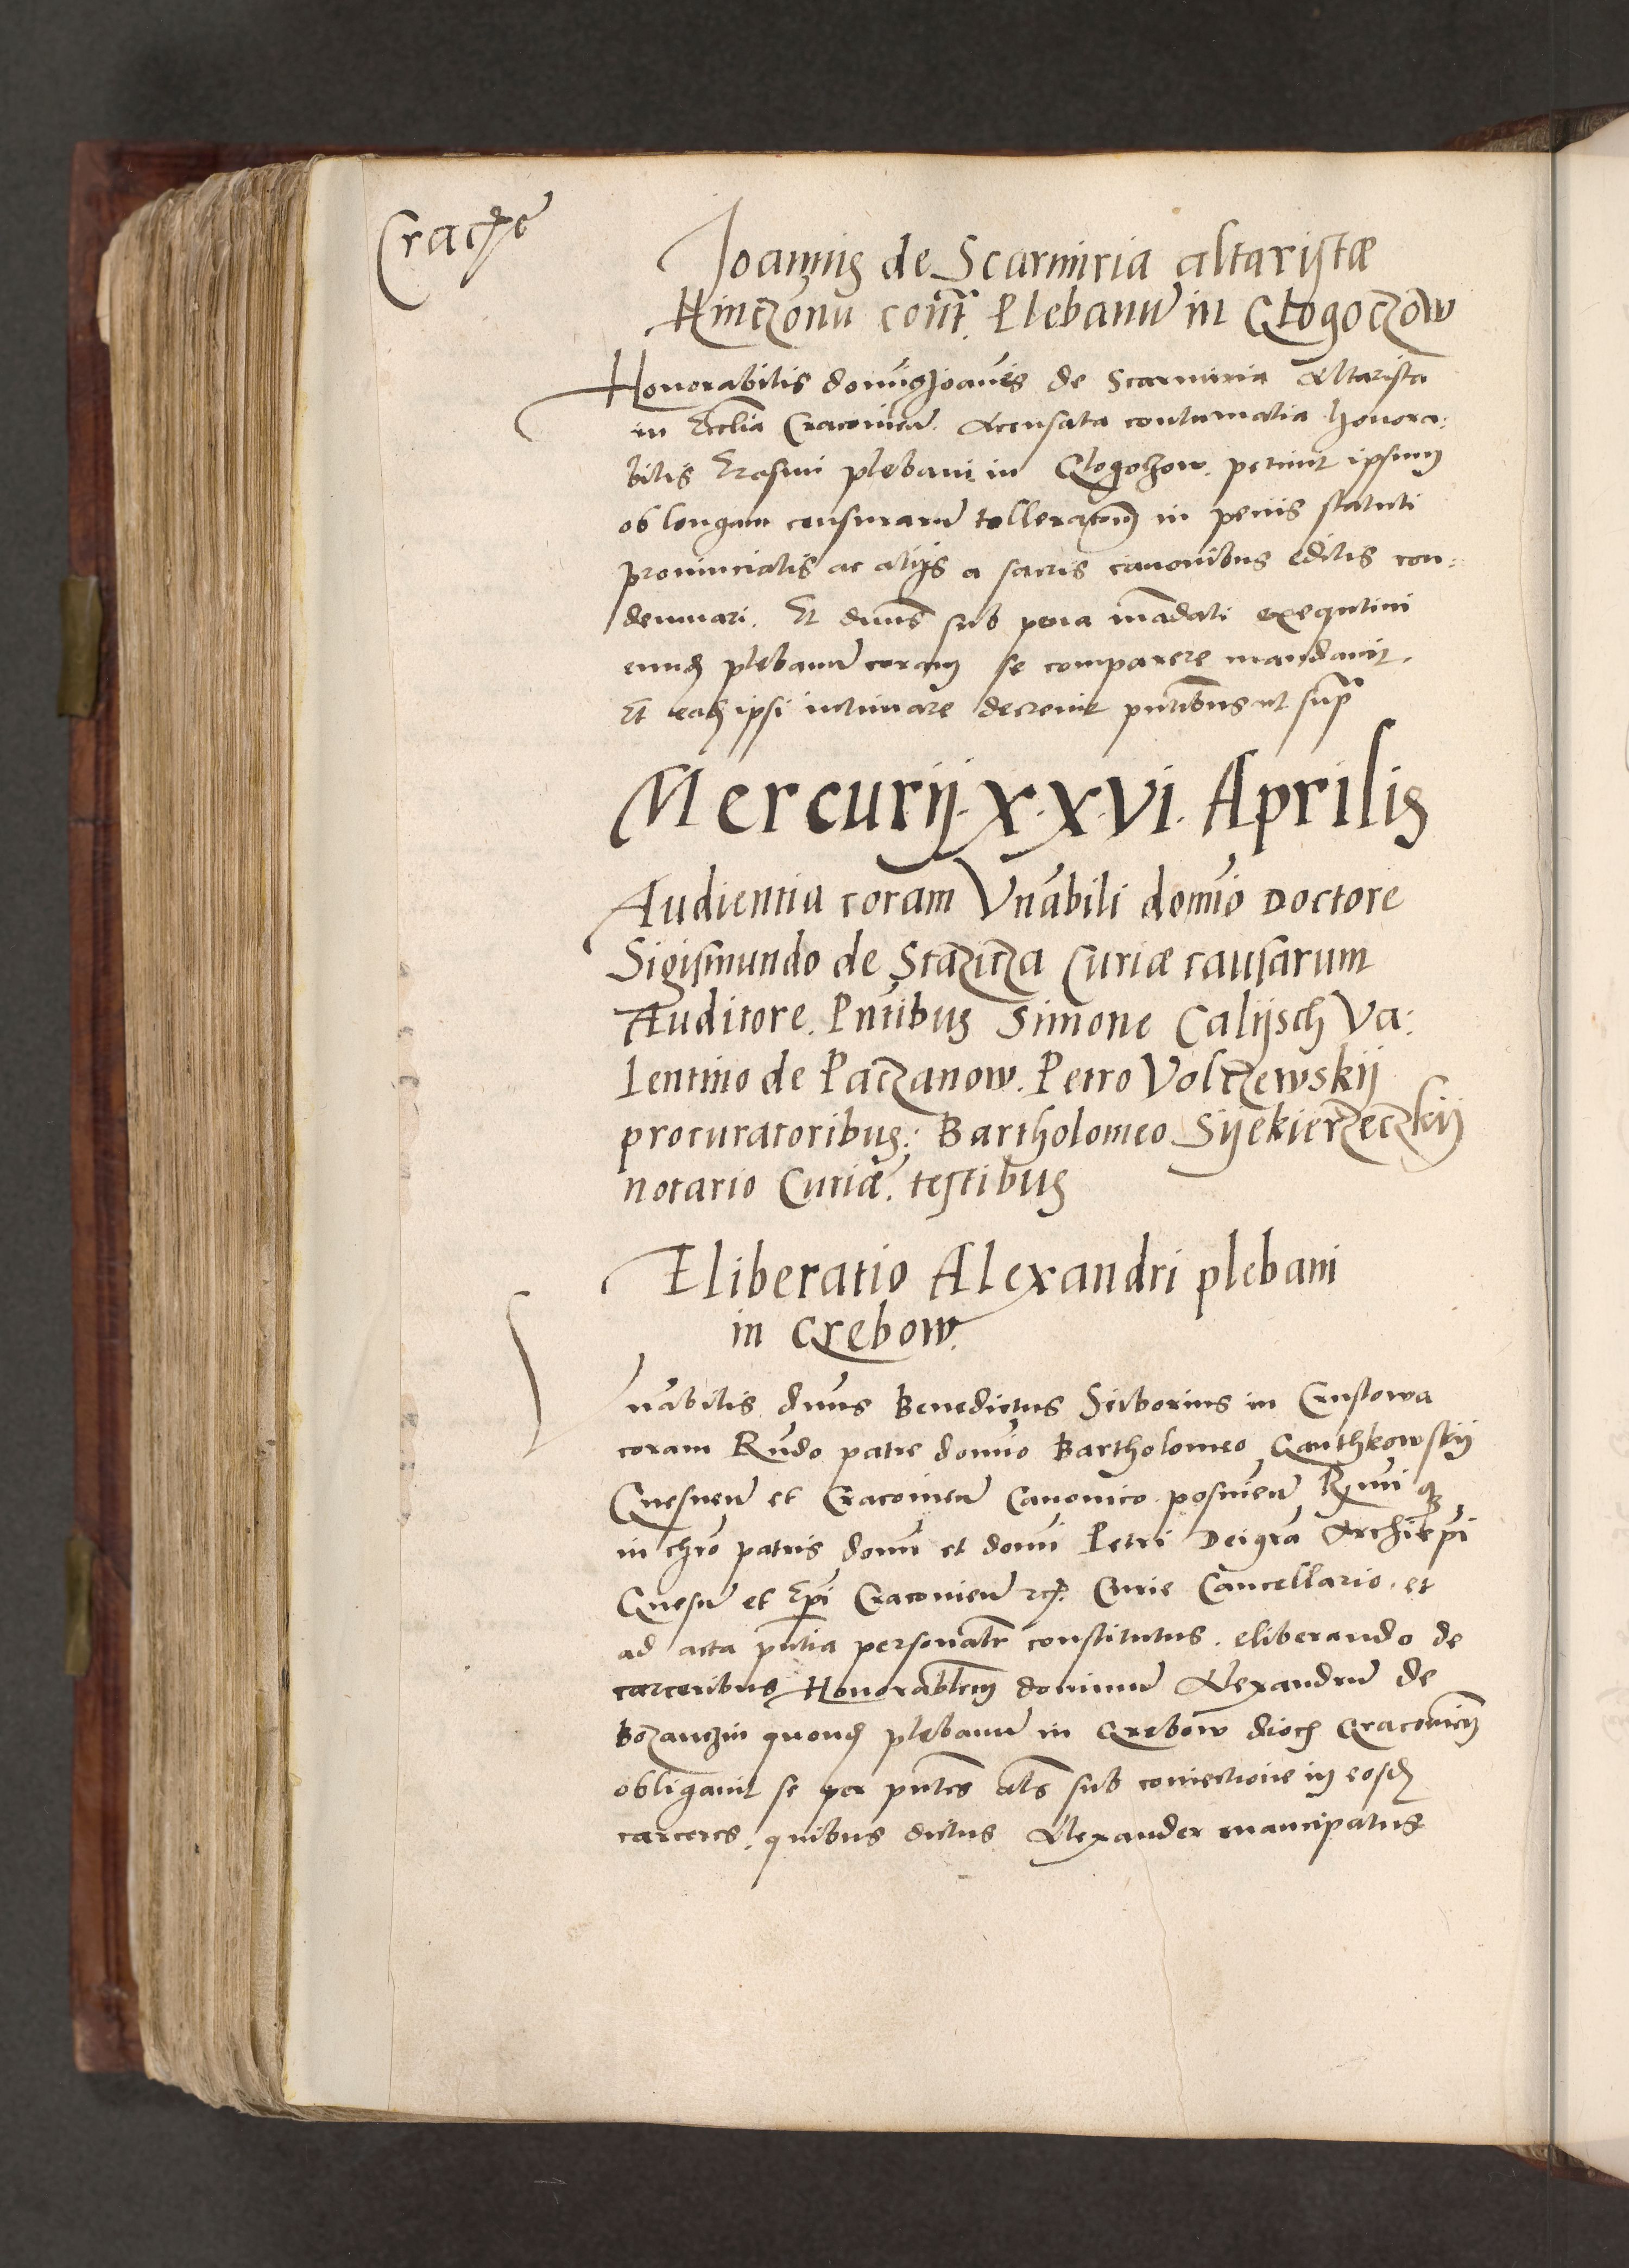 Joannis de Scarmiria altaristæ
Kinczonu contra Plebanū in Glogoczow
Honorabilis dominus Joannes de Scarmiria Altarista
in Ecclīa Cracovieñ. Accusata contumatia honora:
bilis Erasmi plebani in Glogoczow. petiuit ipsum
ob longam censurarū tolleratōem in penis statuti
prouincialis ac alijs a sacris canonibus editis con=
demnari. Et dnus sub pena mādati exequtiui
eundē plebanū coram se comparere mandauit.
Et eadē ipsi intimare decreuit pñtibus ut supra
Mercurij. X.X.VI. Aprilis
Audientia coram Vnābili domīo Doctore
Sigismundo de Stāzicza Curiæ causarum
Auditore. Pñtibus Simone Calijsch Va:
lentino de Paczanow. Petro Volczewskij
procuratoribus: Bartholomeo Sijekierzeczkij
notario Curiæ. testibus
Eliberatio Alexandri plebani
in Grebow.
Vnābilis dnus Benedictus in
coram Rñdo patre domīo Bartholomeo Ganthkowskij
Gnesneñ et Cracovieñ Canonico
in chrō patris domī et domī Petri Dei gr̃a Archiep̄i
Gnesñ et Ep̄i Cracovieñ Curie Cancellario. et
ad acta pñtia personalr̄ constitutus. eliberando de
carceribus Honorabilem dominū Alexandrū de
plebanū in Grebow dioc̄
obligauit se per pñtes sub coniectione in eosdē
carceres. quibus dictus Alexander mancipatus